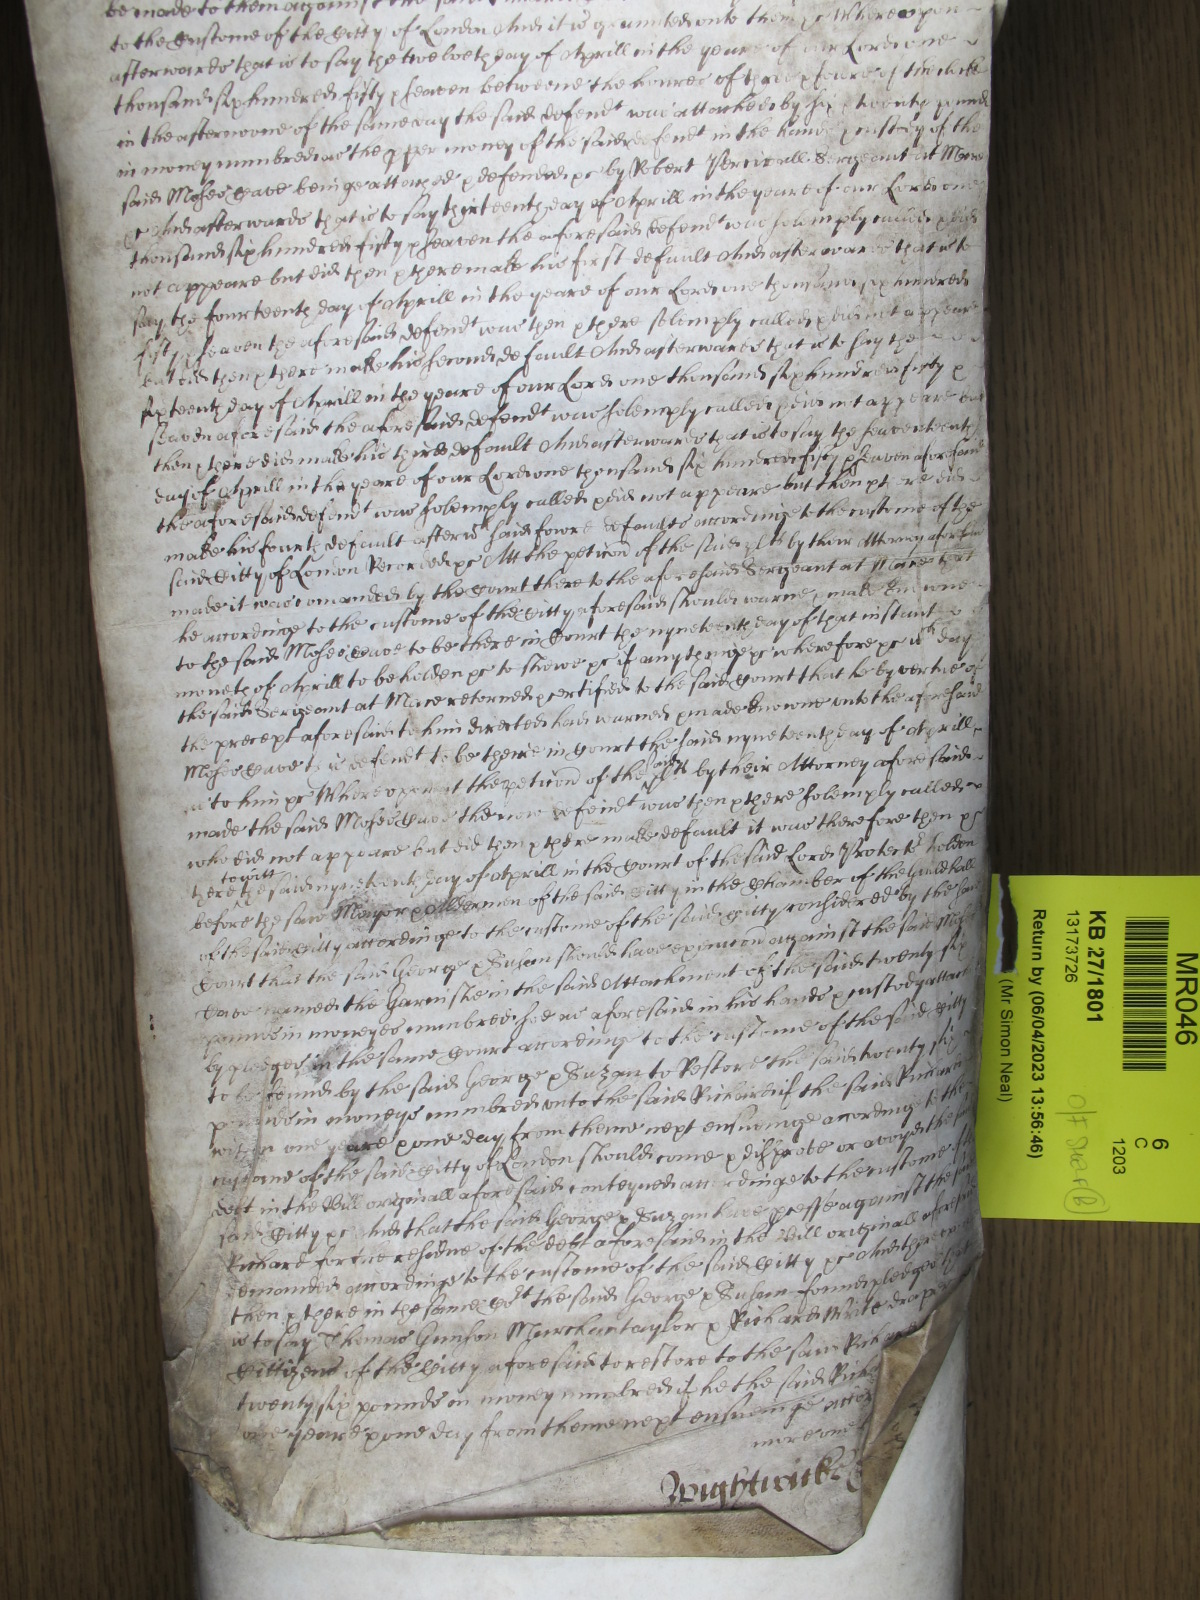 be made to them against the said
to the Custome of the Citty of London And it is graunted unto them &c Whereupon
afterwards that is to say the twelveth day of Aprill in the yeare of our Lord one
thousand six hundred fifty & seaven betweene the houres of three & foure of the clocke
in the afternoone of the same day the said defendt was attached by six & twenty pounds
in money numbred as the p per money of the said defendt in the hands & custody of the
said Moses beinge attached & defended &c by Robert Sergeant at Mace
&c And afterwards that is to say thirteenth day of Aprill in the yeare of our Lord one
thousand six hundred fifty & seaven the aforesaid defendt was solemply called & did
not appeare but did then & there make his first default And afterwards that is to
say the fourteenth day of Aprill in the yeare of our Lord one thousand six hundred
fifty & seaven the aforesaid defendt was then & there solemply called & did not appeare
but did then & there make his second default And afterwards that is to say the
sixteenth day of Aprill in the yeare of our Lord one thousand six hundred fifty &
seaven aforesaid the aforesaid defendt was solemply called & did not appeare but
then & there did make his third default And afterwards that is to say the seaventeenth
day of Aprill in the yeare of our Lord one thousand six hundred fifty & seaven aforesaid
the aforesaid defendt was solemply called & did not appeare but then & there did
make his fourth default after wch said fowre defaults accordinge to the custome of the
said Citty of London Recorded &c Att the peticon of the said plts by their Attorney aforesaid
made it was comanded by the Court there to the aforesaid Sergeant at Mace that
he accordinge to the custome of the Citty aforesaid should warne & make knowne
to the said Moses to be there in Court the nyneteenth day of that instant
moneth of Aprill to be holden &c to shewe &c if any thinge &c wherefore &c att wch day
the said Sergeant at Mace returned & certified to the said Court that he by vertue of
the precept aforesaid to him directed had warned & made knowne unto the aforesaid
Moses defendt to be there in Court the said nyneteenth day of Aprill
to him &c Whereupon att the peticon of the said plts by their Attorney aforesaid
made the said Moses the now defendt was then & there solemply called
who did not appeare but did then & there make default it was therefore then &c
there to witt the said nyneteenth day of Aprill in the Court of the said Lord Protector holden
before the said Maior & Aldermen of the said Citty in the Chamber of the Guildhall
of the said Citty accordinge to the custome of the said Citty considered by the said
Court that the said George & Susan should have execucon against the said Moses
named the Garnishee in the said Attachment of the said twenty six
pounds in moneyes numbred soe as aforesaid in his hands & custody attached
by pledges in the same Court accordinge to the custome of the said Citty
to be found by the said George & Suzan to Restore the said twenty six
pounds in moneys numbred unto the said Richard if the said Richard
within one yeare & one day from thence next ensuinge accordinge to the
custome of the said Citty of London should come & disprove or avoyde the said
debt in the Bill originall aforesaid conteyned accordinge to the custome of the
said Citty &c And that the said George & Suzan have processe against the said
Richard for the residue of the debt aforesaid in the Bill originall aforesaid
demanded accordinge to the custome of the said Citty &c And there
then & there in the same Cort the said George & Susan found pledges that
is to say Thomas Gunson Marchantaylor & Richard White draper
Cittizens of the Citty aforesaid to restore to the said Richard
twenty six pounds in money numbred if he the said Richard
one yeare & one day from thence next ensuinge
more one
Wightwick
MR046
6
C
1203
KB 27/1801
13173726
Return by (06/04/2023 13:56:46)
(Mr Simon Neal)